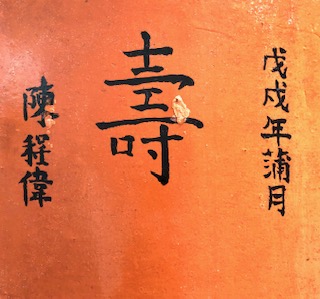 戊戌年蒲月
壽
陳程偉